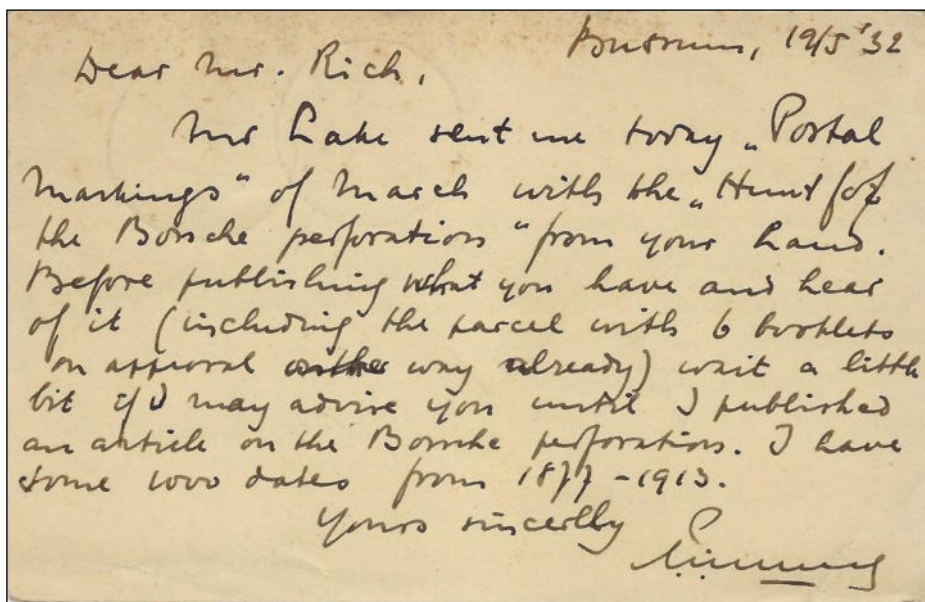 Bussum, 19/5 '32
Dear Mr. Rich,
Mr Lake sent me today „Postal
Markings" of March with the „Hunt for
the Bossche perforations" from your hand.
Before publishing what you have and hear
of it (including the parcel with 6 booklets
on approval on the way already) wait a little
bit if I may advise you until I published
an article on the Bossche perforations. I have
some 1000 dates from 1877-1913.
Yours sincerlly